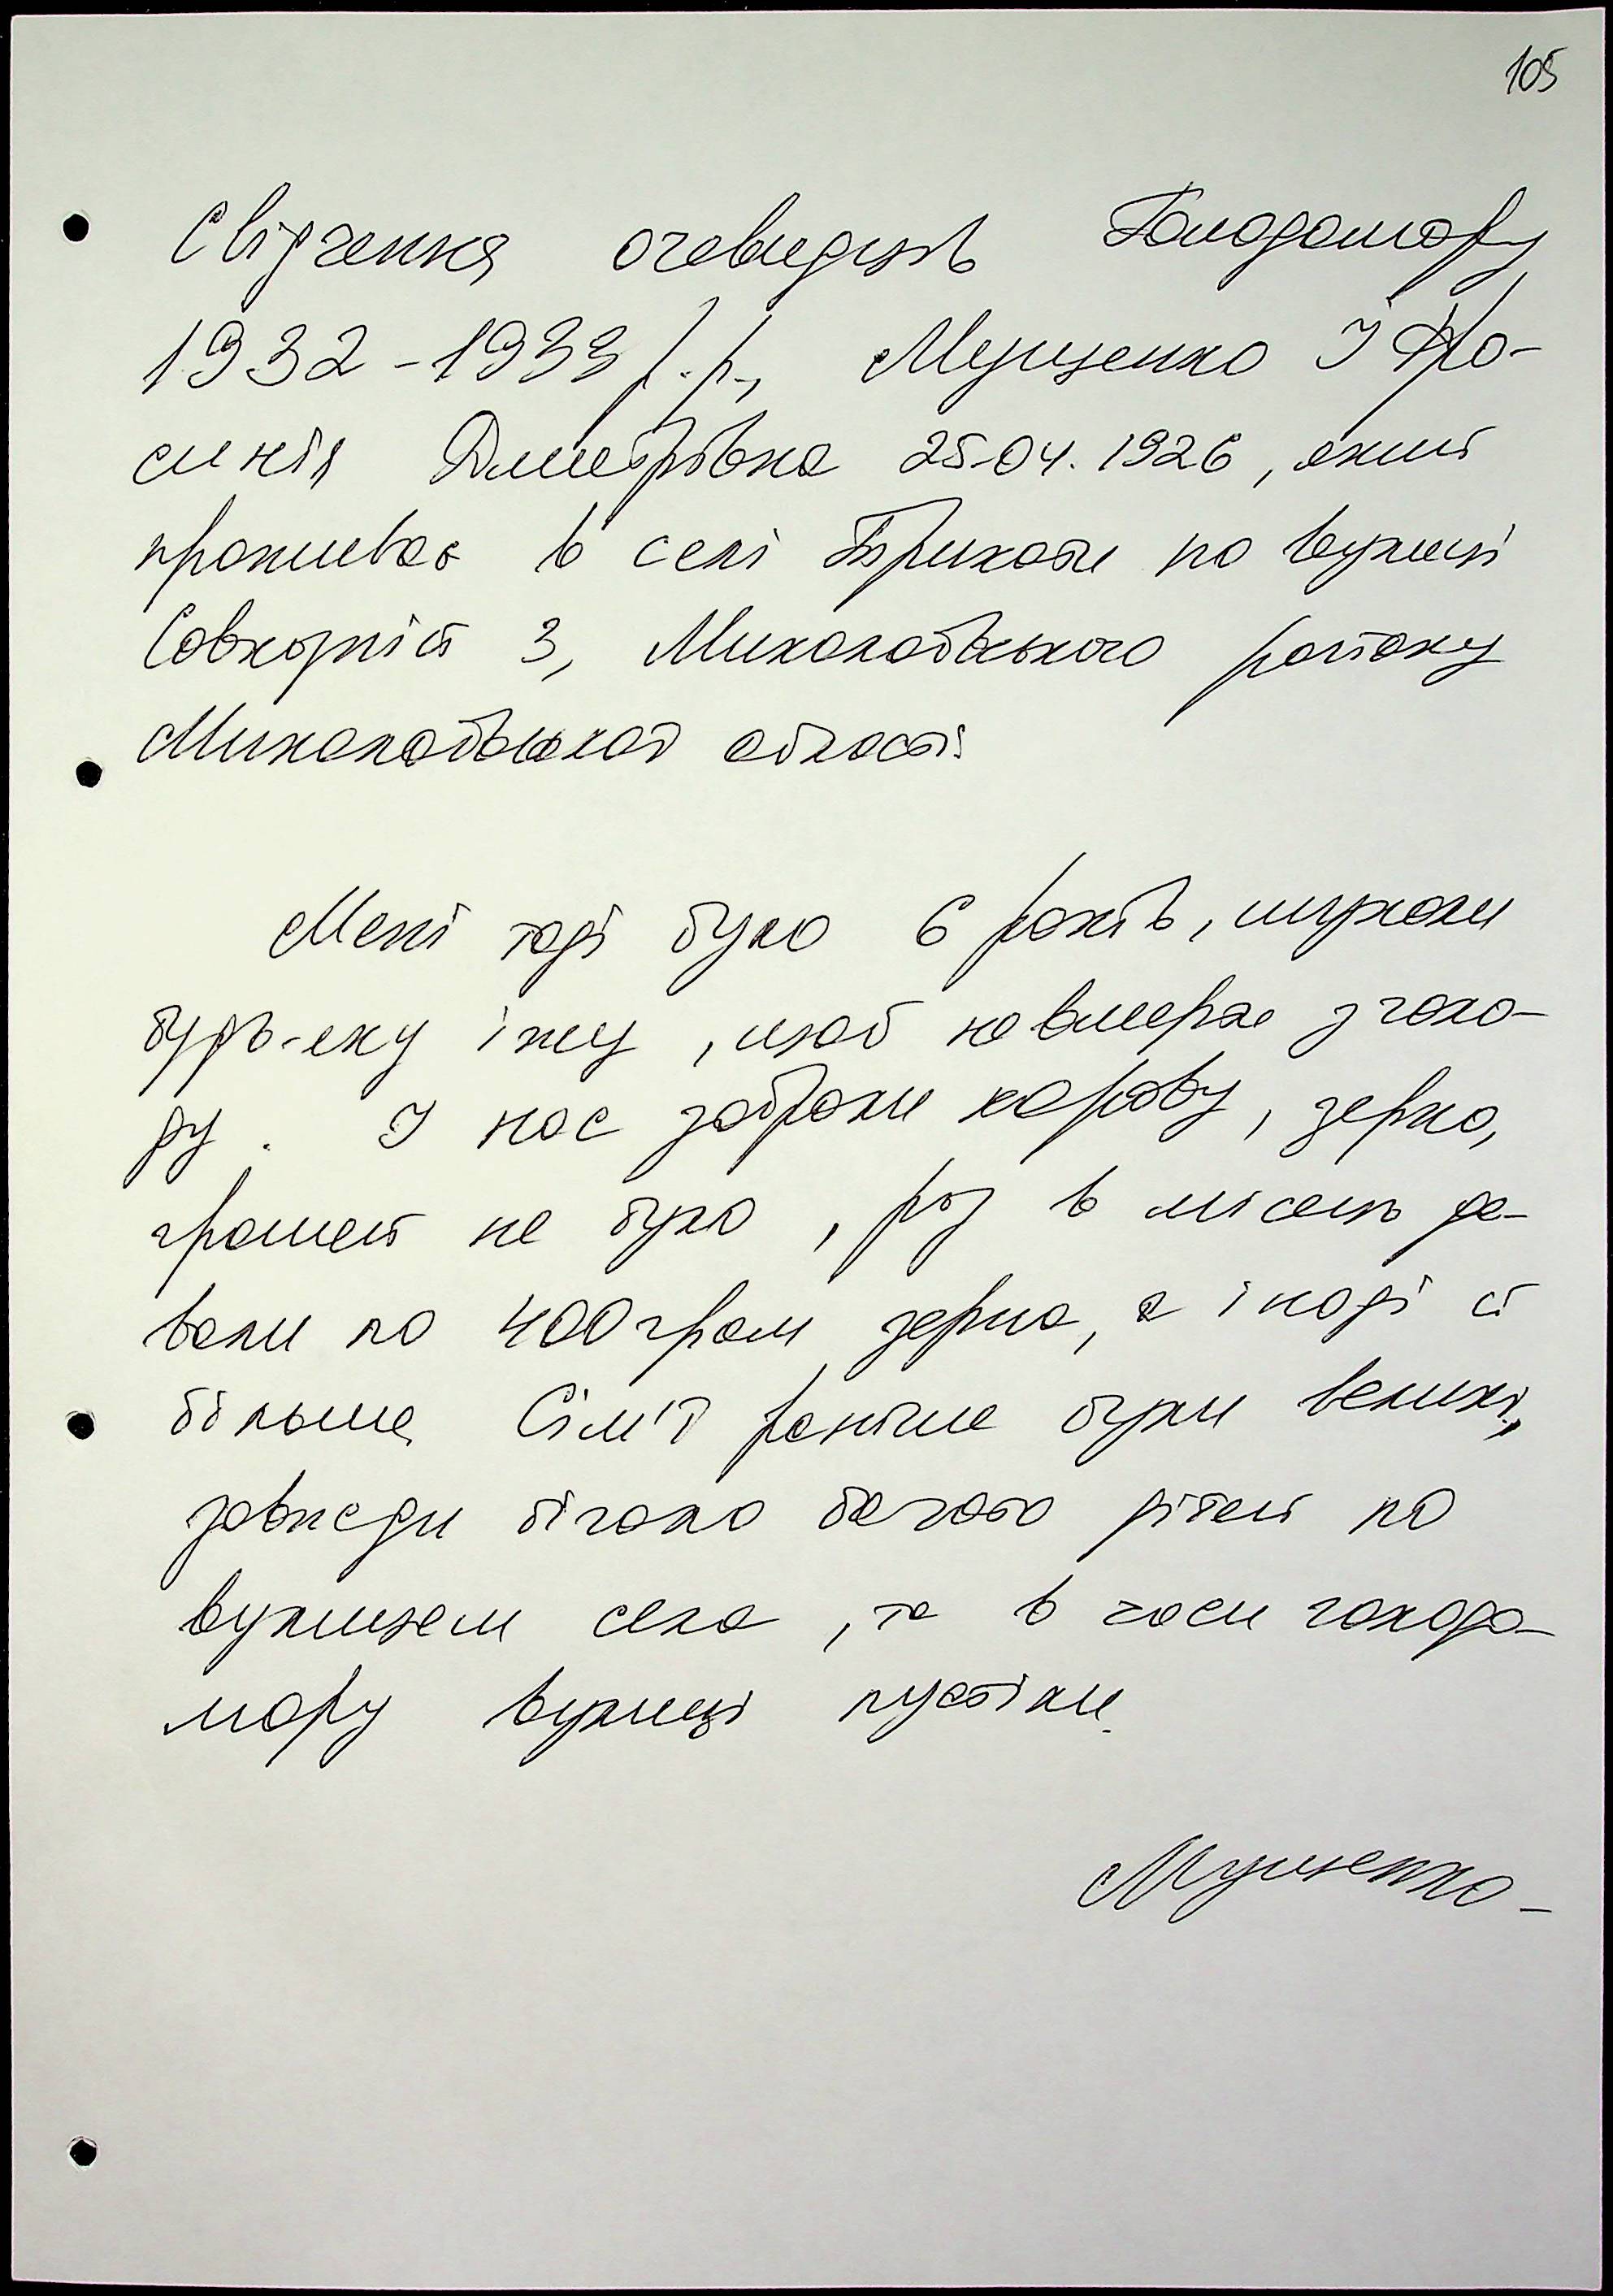 105
Свідчення очевидців Голодомору
1932-1933 р.р., Мущенко Іфро-
синія Дмитрівна 25.04.1926, який
проживає в селі Трихати по вулиці
Совхозній 3, Миколаївського району
Миколаївської області.
Мені тоді було 6 років, шукали
будь-яку їжу, щоб не вмерти з голо-
ду. У нас забрали корову, зерно,
грошей не було, раз в місяць да-
вали по 400 грам зерна, а іноді й
більше. Сім'ї раніше були великі,
завжди бігало багато дітей по
вулицям села, та в часи голодо-
мору вулиці пустіли.
Мущенко